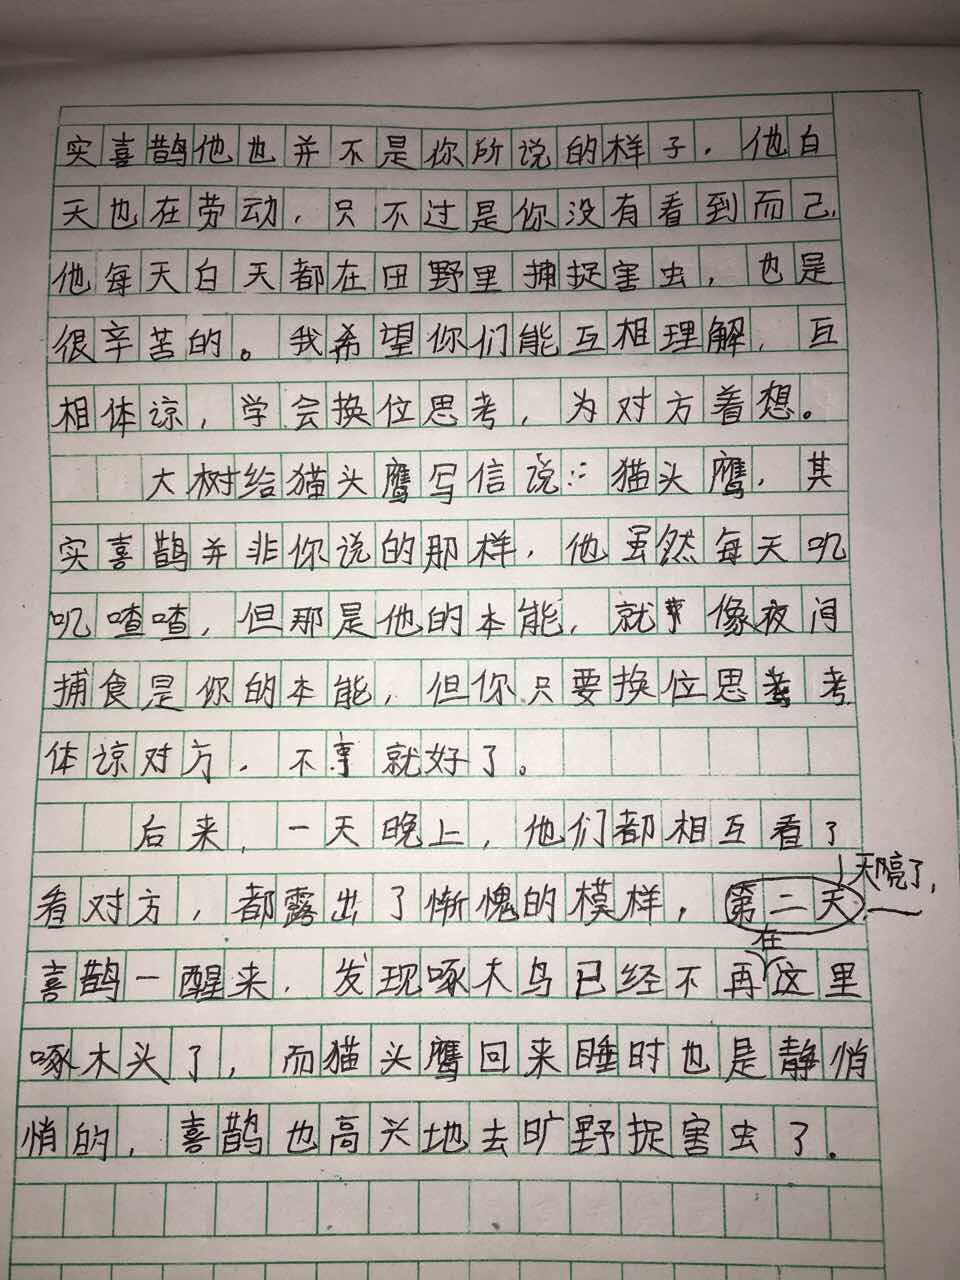 实喜鹊他也并不是你所说的样子，他白
天也在劳动，只不过是你没有看到而已，
他每天白天都在田野里捕捉害虫，也是
很辛苦的。我希望你们能互相理解，互
相体谅，学会换位思考，为对方着想。
大树给猫头鹰写信说：猫头鹰，其
实喜鹊并非你说的那样，他虽然每天叽
叽喳喳，但那是他的本能，就像夜间
捕食是你的本能，但你只要换位思考
体谅对方，不就好了。
后来，一天晚上，他们都相互看了
看对方，都露出了惭愧的模样，第二天
天亮了，
在
喜鹊一醒来，发现啄木鸟已经不再这里
啄木头了，而猫头鹰回来睡时也是静悄
悄的，喜鹊也高兴地去旷野捉害虫了．